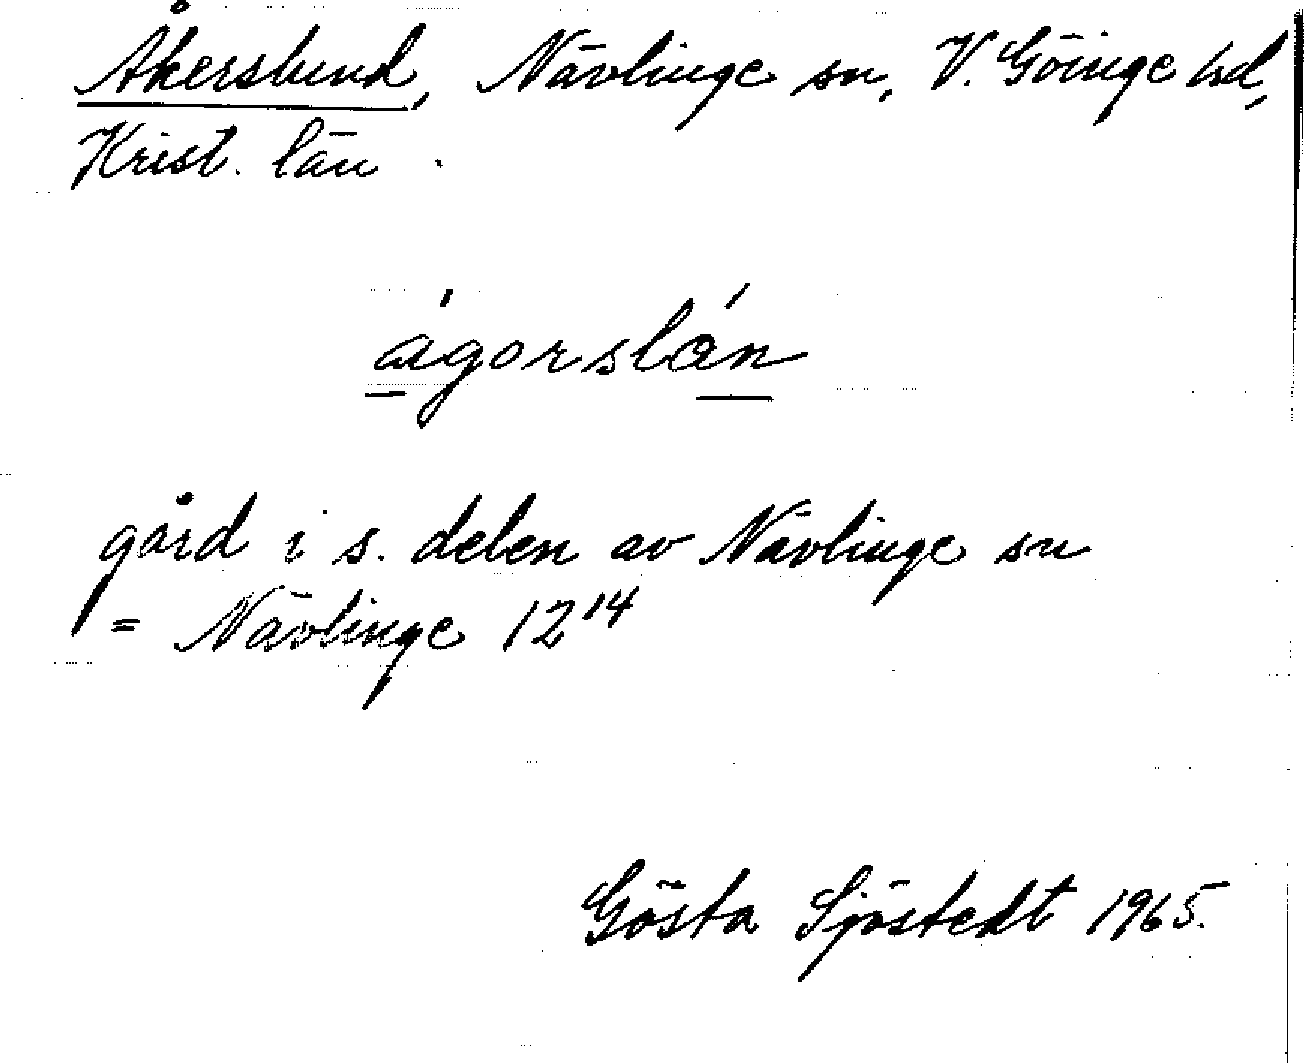 Åkerslund, Nävlinge sn, V. Göinge hd,
Krist. län.
ágorslán
gård i s. delen av Nävlinge sn
= Nävlinge 12¹⁴
Gösta Sjöstedt 1965.